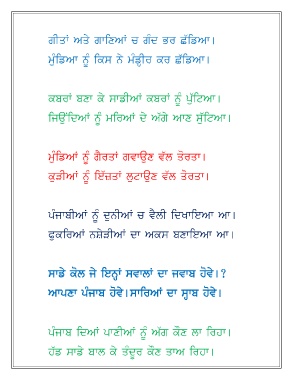 ਗੀਤਾਂ ਅਤੇ ਗਾਣਿਆਂ ਚ ਗੰਦ ਭਰ ਛੱਡਿਆ।
ਮੁੰਡਿਆ ਨੂੰ ਕਿਸ ਨੇ ਮੰਡ੍ਹੀਰ ਕਰ ਛੱਡਿਆ।
ਕਬਰਾਂ ਬਣਾ ਕੇ ਸਾਡੀਆਂ ਕਬਰਾਂ ਨੂੰ ਪੁੱਟਿਆ।
ਜਿਉਂਦਿਆਂ ਨੂੰ ਮਰਿਆਂ ਦੇ ਅੱਗੇ ਆਣ ਸੁੱਟਿਆ।
ਮੁੰਡਿਆਂ ਨੂੰ ਗੈਰਤਾਂ ਗਵਾਉਣ ਵੱਲ ਤੋਰਤਾ।
ਕੁੜੀਆਂ ਨੂੰ ਇੱਜ਼ਤਾਂ ਲੁਟਾਉਣ ਵੱਲ ਤੋਰਤਾ।
ਪੰਜਾਬੀਆਂ ਨੂੰ ਦੁਨੀਆਂ ਚ ਵੈਲੀ ਦਿਖਾਇਆ ਆ।
ਫੁਕਰਿਆਂ ਨਸ਼ੇੜੀਆਂ ਦਾ ਅਕਸ ਬਣਾਇਆ ਆ।
ਸਾਡੇ ਕੋਲ ਜੇ ਇਨ੍ਹਾਂ ਸਵਾਲਾਂ ਦਾ ਜਵਾਬ ਹੋਵੇ।?
ਆਪਣਾ ਪੰਜਾਬ ਹੋਵੇ।ਸਾਰਿਆਂ ਦਾ ਸ੍ਹਾਬ ਹੋਵੇ।
ਪੰਜਾਬ ਦਿਆਂ ਪਾਣੀਆਂ ਨੂੰ ਅੱਗ ਕੌਣ ਲਾ ਰਿਹਾ।
ਹੱਡ ਸਾਡੇ ਬਾਲ ਕੇ ਤੰਦੂਰ ਕੌਣ ਤਾਅ ਰਿਹਾ।